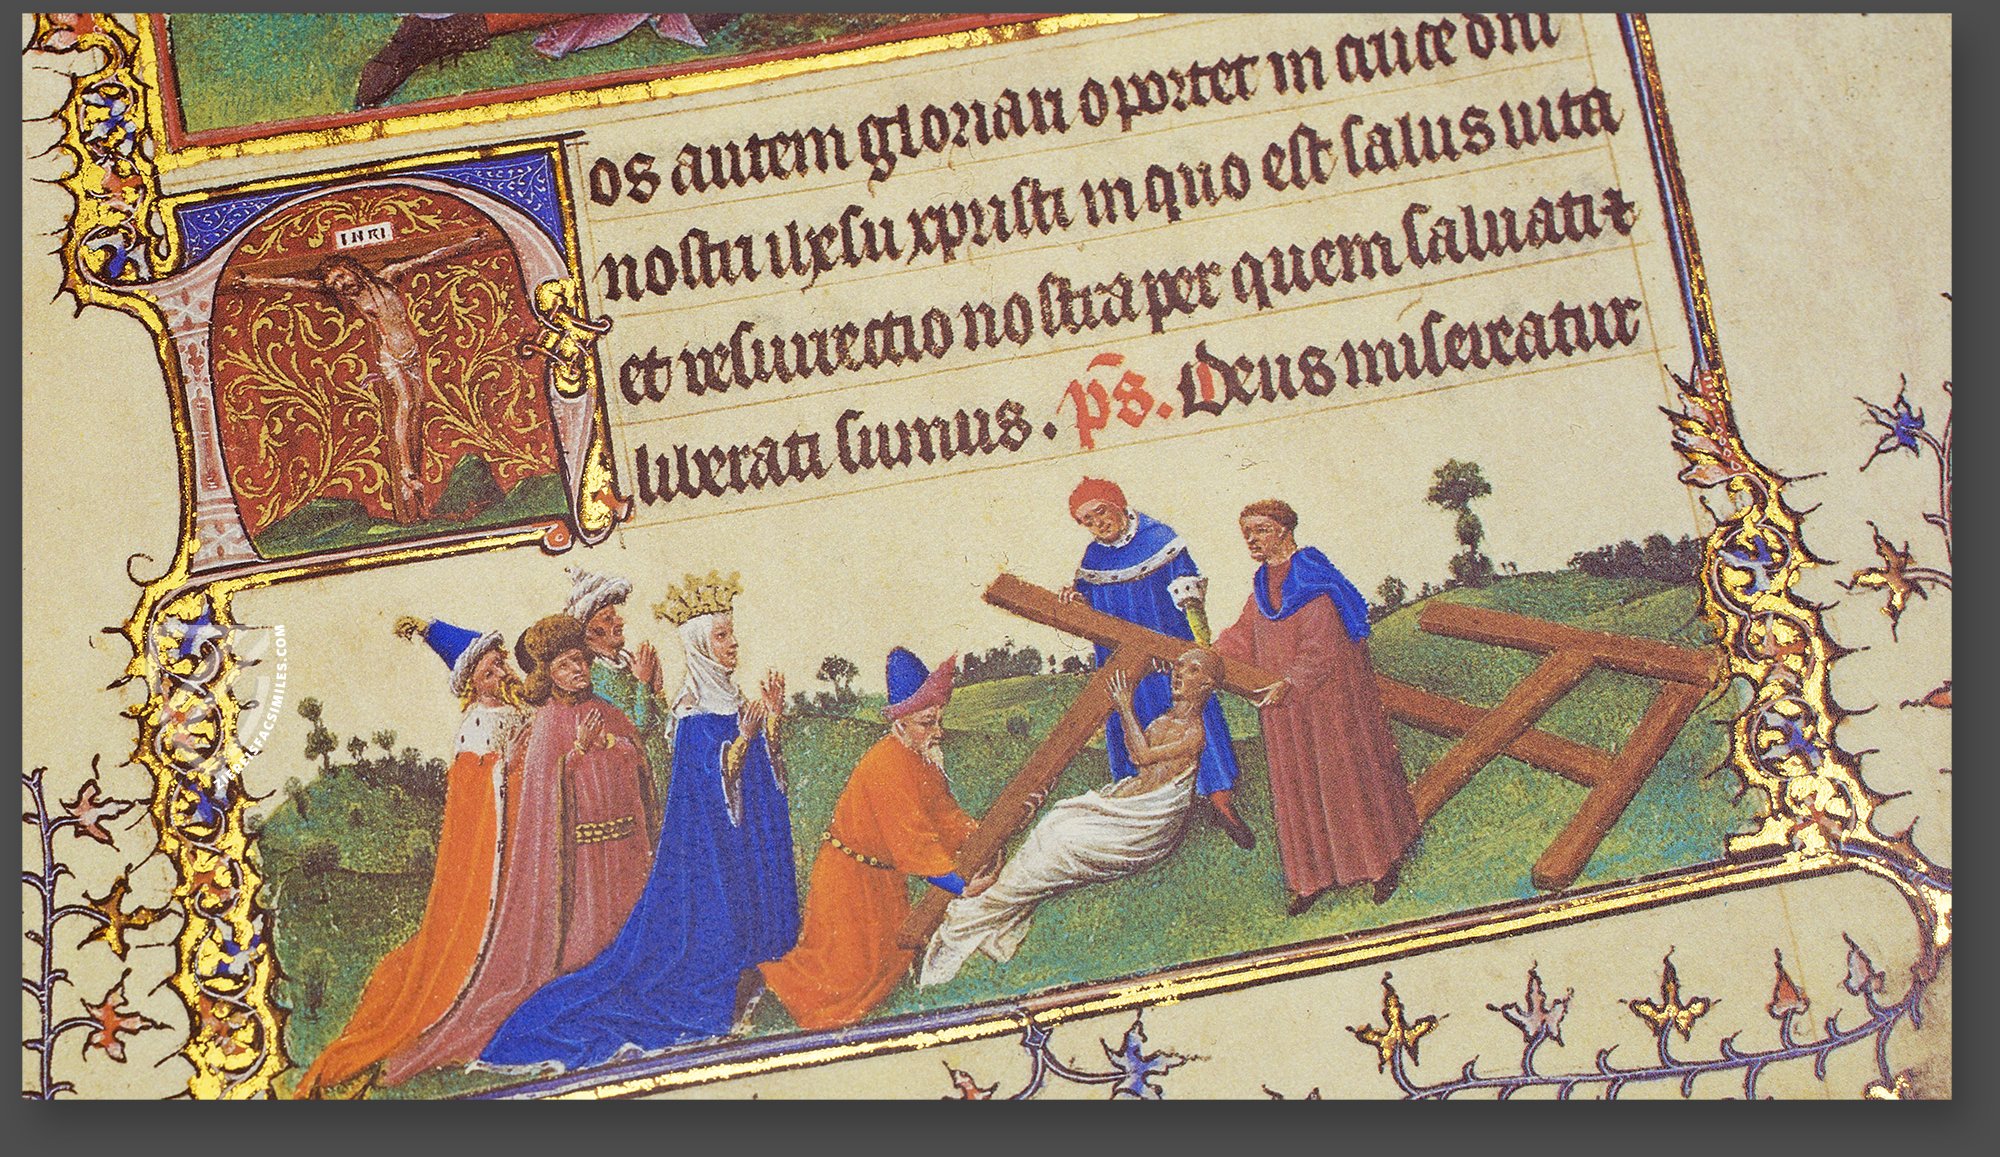 os autem gloriari oportet in cruce dni
nostri ihesu xpristi in quo est salus uita
et resurrectio nostra per quem saluati z
liberati sumus. ps. Deus misereatur
INRI
ZIEREISFACSIMILES.COM